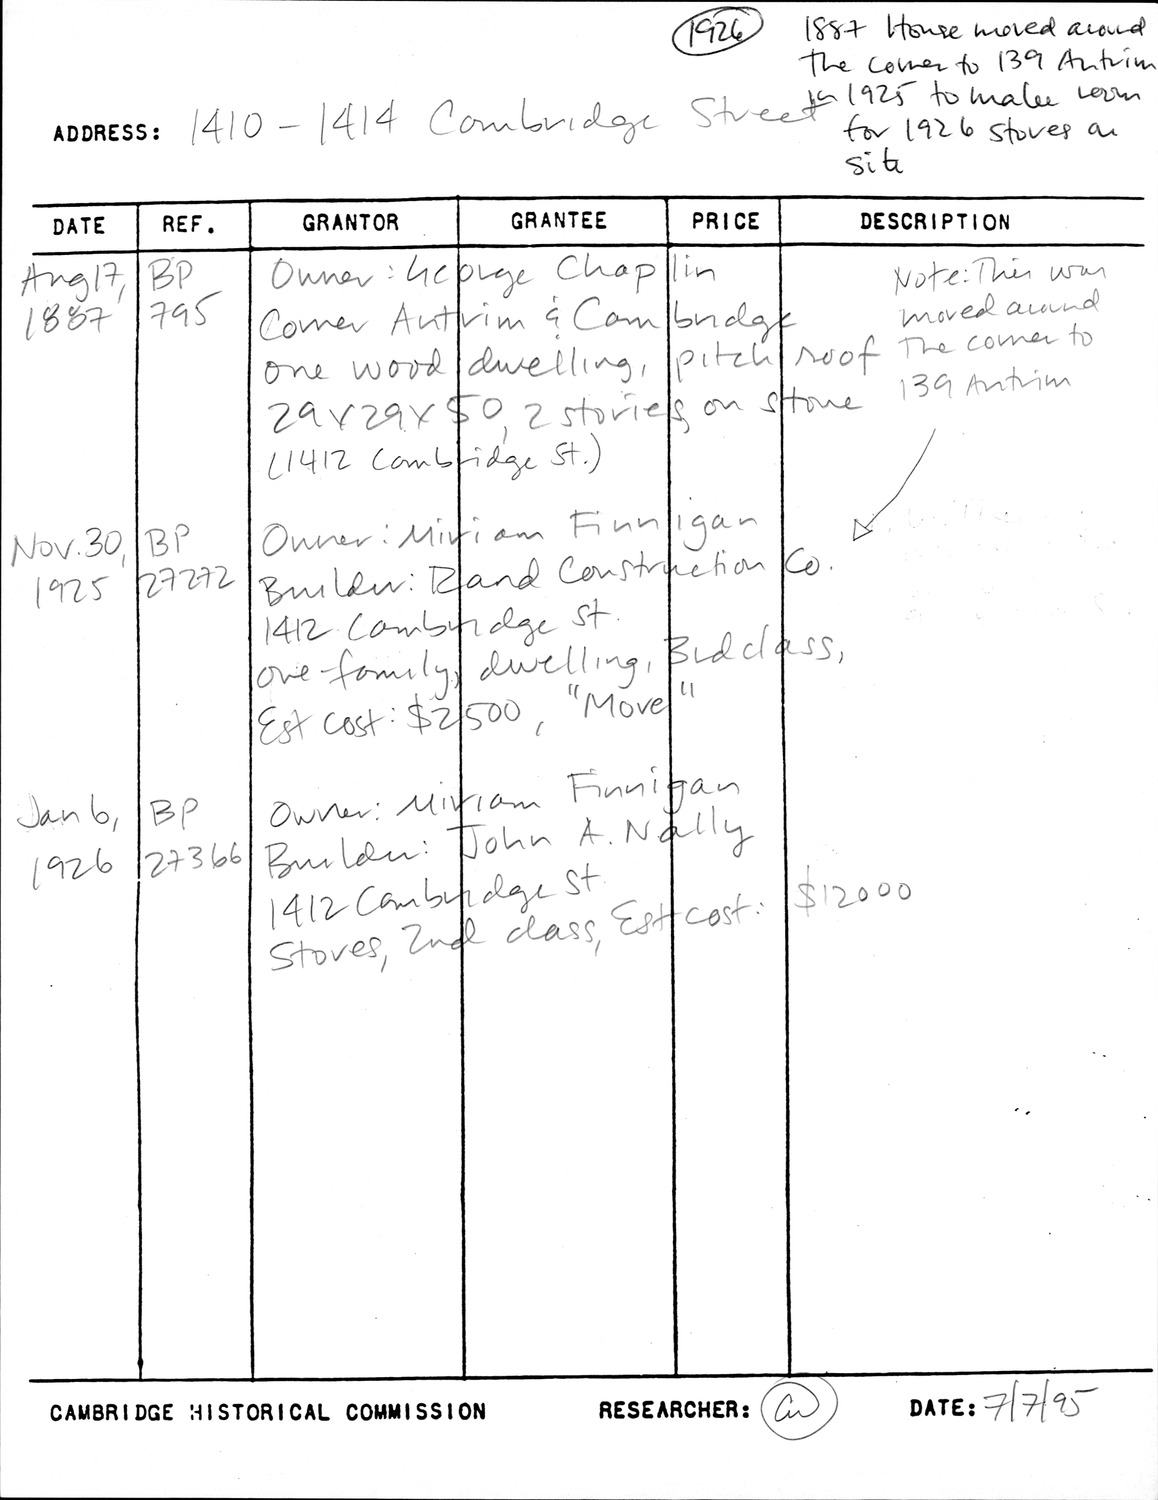 1926
1887 House moved around
the corner to 139 Antrim
in 1925 to make room
for 1926 stores on
site
ADDRESS: 1410 - 1414 Cambridge Street
DATE REF. GRANTOR GRANTEE PRICE DESCRIPTION
Aug 17, BP Owner: George Chaplin
1887 795 Corner Antrim & Cambridge
one wood dwelling, pitch roof
29x29x50, 2 stories, on stone
(1412 Cambridge St.)
Note: This was
moved around
the corner to
139 Antrim
Nov. 30, BP Owner: Miriam Finnigan
1925 27272 Builder: Rand Construction Co.
1412 Cambridge St.
one-family, dwelling, 3rd class,
Est cost: $2500, "Move"
Jan 6, BP Owner: Miriam Finnigan
1926 27366 Builder: John A. Nally
1412 Cambridge St.
Stores, 2nd class, Est cost: $12000
CAMBRIDGE HISTORICAL COMMISSION RESEARCHER: DATE: 7/7/95